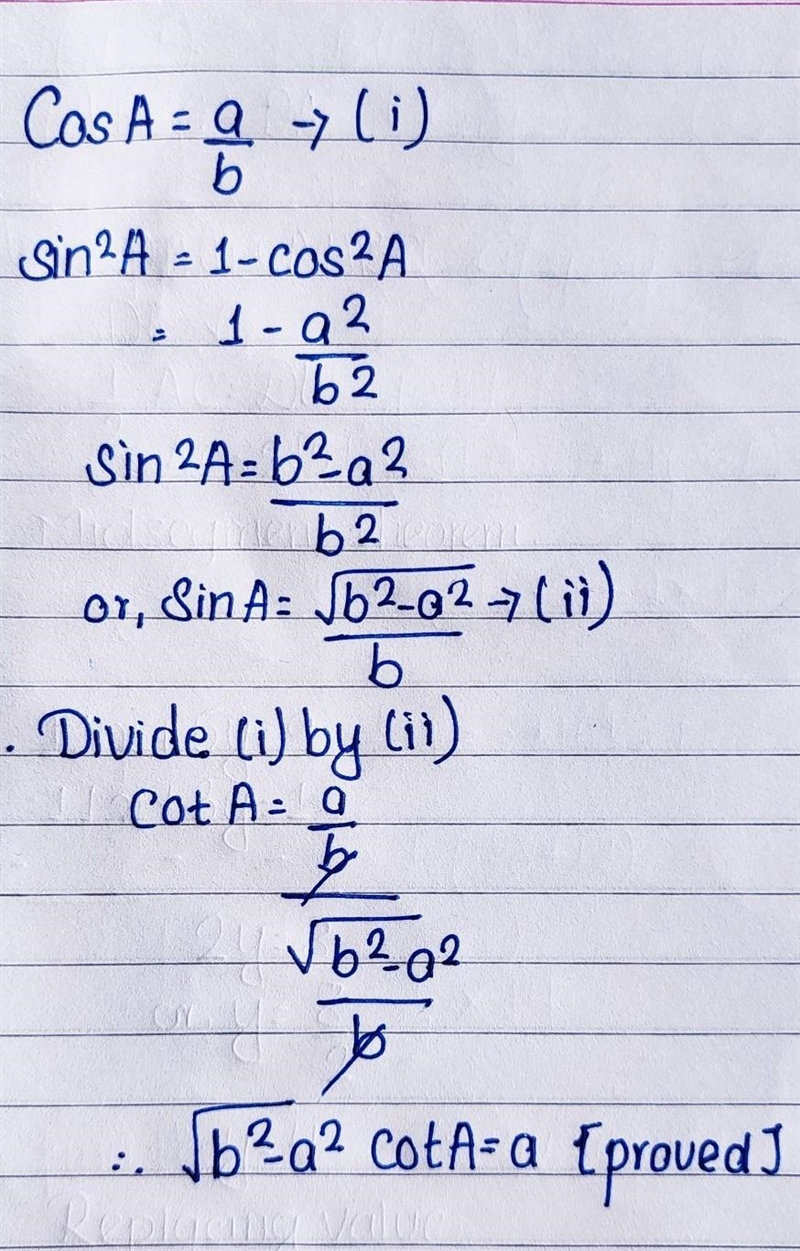 Cos A = a/b → (i)
sin²A = 1 - cos²A
= 1 - a²/b²
sin²A = b²-a²/b²
or, sin A = √b²-a²/b → (ii)
. Divide (i) by (ii)
cot A = a/b / √b²-a²/b
∴ √b²-a² cot A = a [proved]
Replacing value